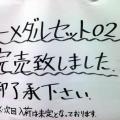 ーメダルセット02
完売致しました.
御了承下さい.
※次回入荷は未定となっております.